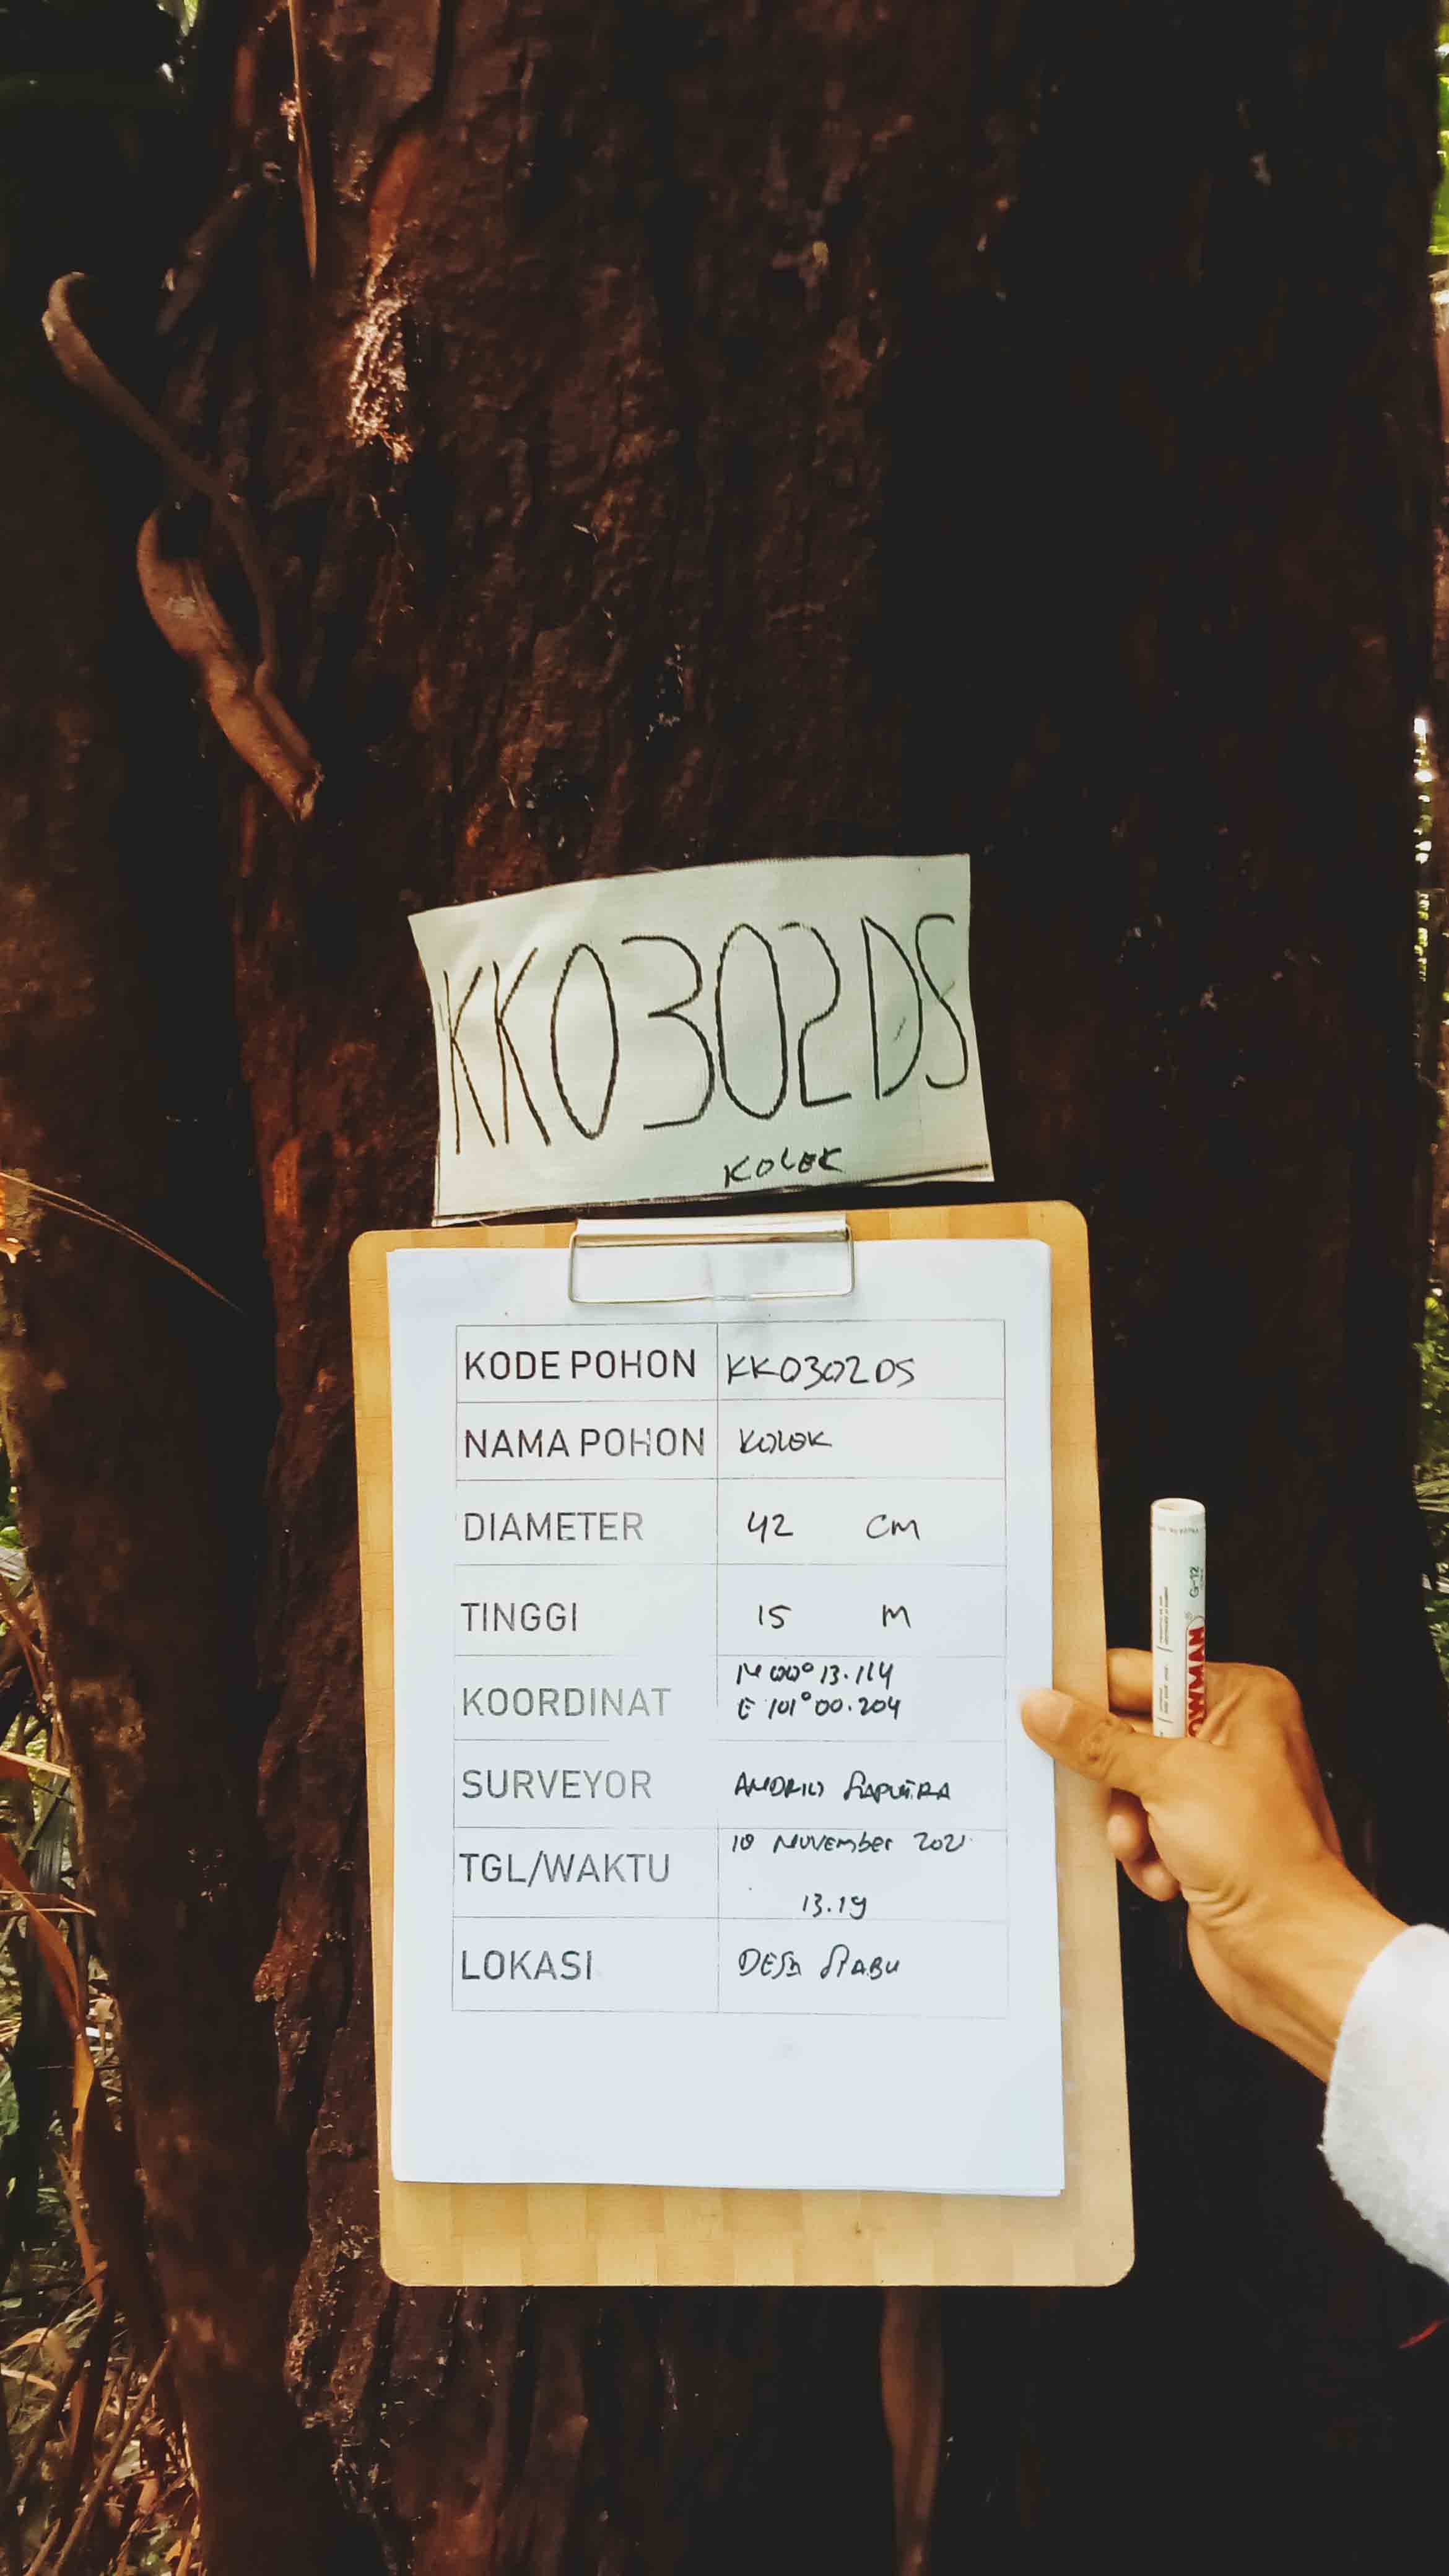 KK0302DS
KOLEK
KODE POHON KK0302DS
NAMA POHON KOLEK
DIAMETER 42 CM
TINGGI 15 M
KOORDINAT N 00° 13.114
E 101° 00.204
SURVEYOR SAPUTRA
TGL/WAKTU November 2021
13.19
LOKASI DESA
G-12
OWMAN